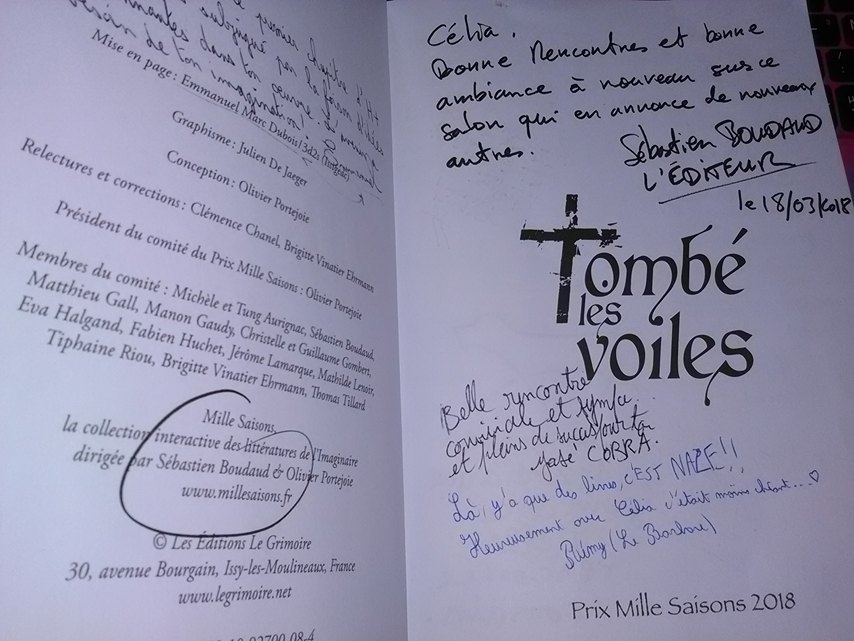 premier chapitre
subjugué par la façon
dans ton oeuvre.
de ton imagination !
Mise en page : Emmanuel Marc Dubois/3d2s (Isegede)
Graphisme : Julien De Jaeger
Conception : Olivier Portejoie
Relectures et corrections : Clémence Chanel, Brigitte Vinatier Ehrmann
Président du comité du Prix Mille Saisons : Olivier Portejoie
Membres du comité : Michèle et Tung Aurignac, Sébastien Boudaud,
Matthieu Gall, Manon Gaudy, Christelle et Guillaume Gombert,
Eva Halgand, Fabien Huchet, Jérôme Lamarque, Mathilde Lenoir,
Tiphaine Riou, Brigitte Vinatier Ehrmann, Thomas Tillard
Mille Saisons,
la collection interactive des littératures de l'Imaginaire
dirigée par Sébastien Boudaud & Olivier Portejoie
www.millesaisons.fr
© Les Éditions Le Grimoire
30, avenue Bourgain, Issy-les-Moulineaux, France
www.legrimoire.net
Célia.
Bonne Rencontres et bonne
ambiance à nouveau sur ce
salon qui en annonce de nouveaux
autres.
Sébastien BOUDAUD
L'ÉDITEUR
le 18/03/2018
Tombé
les
voiles
Belle rencontre
conviviale et sympa
et pleins de succès pour ta
COBRA.
Là, y'a que des livres, c'EST NAZE !!
Heureusement avec Célia c'était moins chiant... ♡
Rémy (Le Barbare)
Prix Mille Saisons 2018